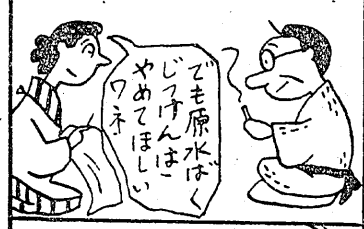 でも原水ばく
じっけんは
やめてほしい
ワネ